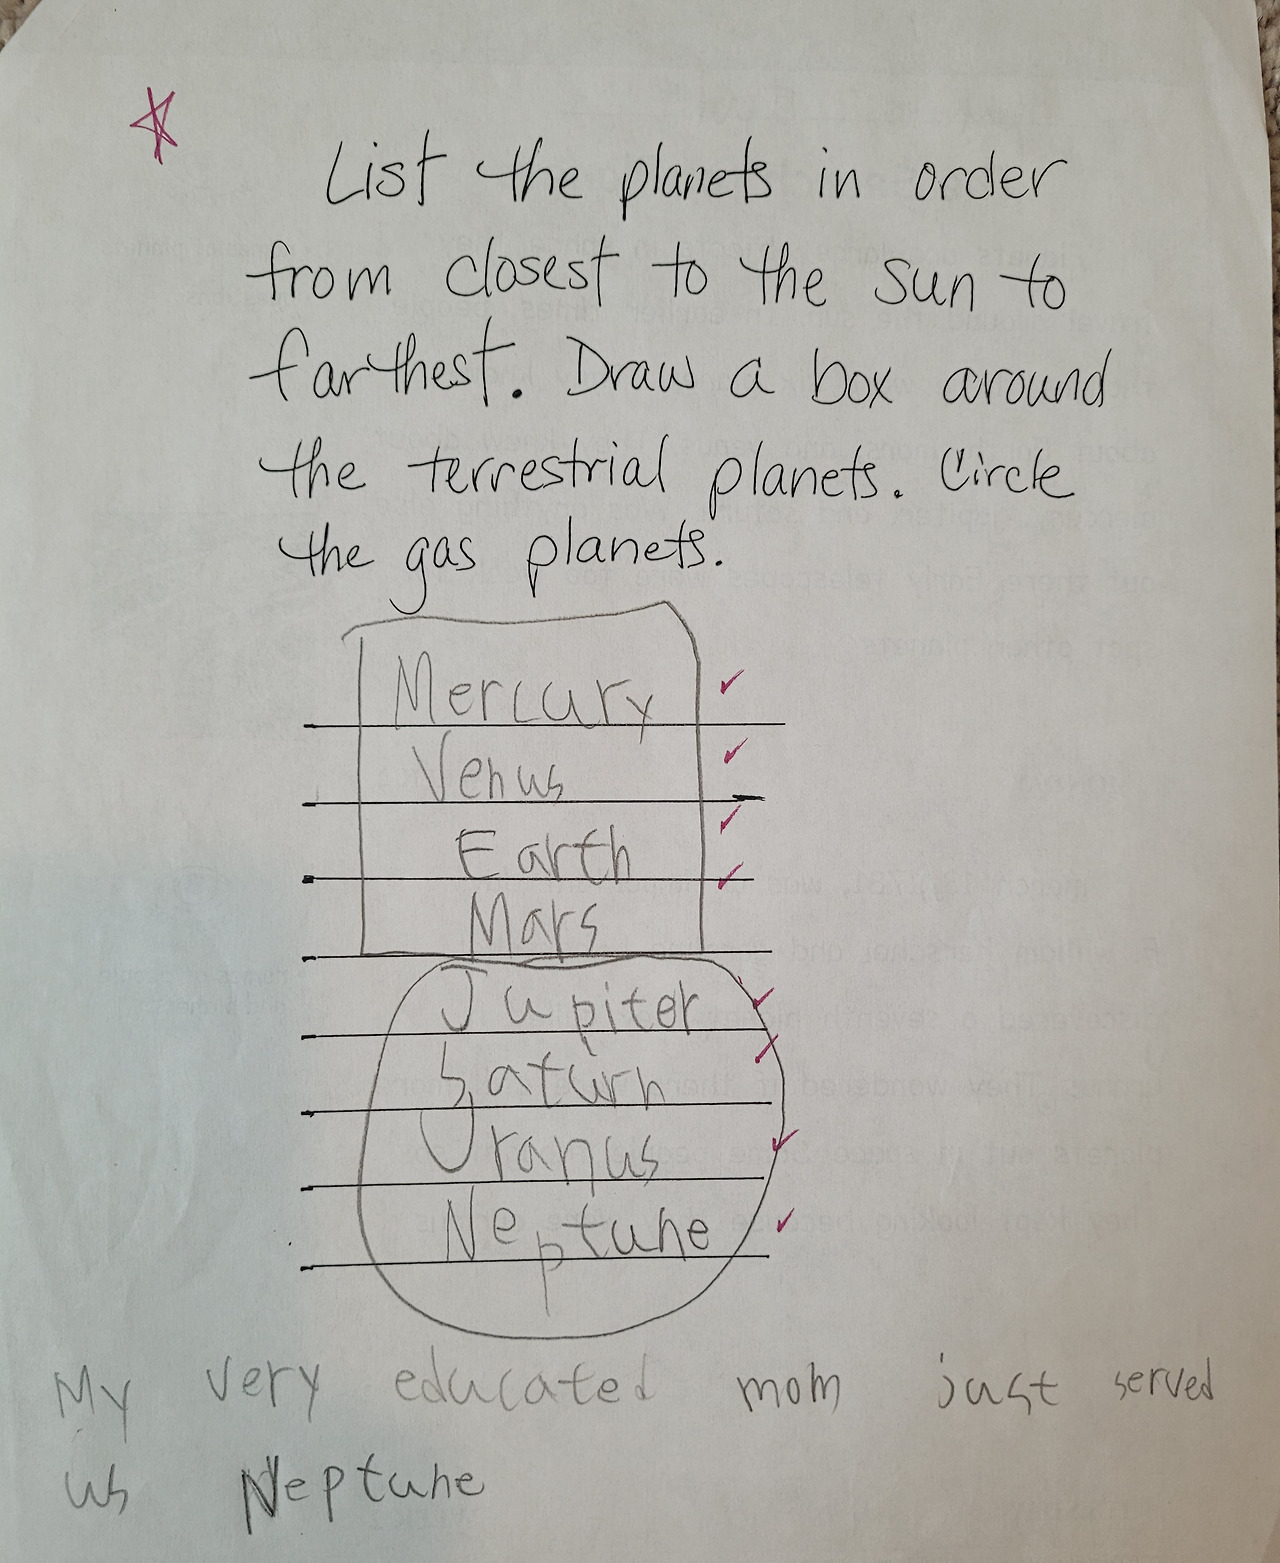 List the planets in order
from closest to the sun to
farthest. Draw a box around
the terrestrial planets. Circle
the gas planets.
Mercury
Venus
Earth
Mars
Jupiter
Saturn
Uranus
Neptune
My very educated mom just served
us Neptune